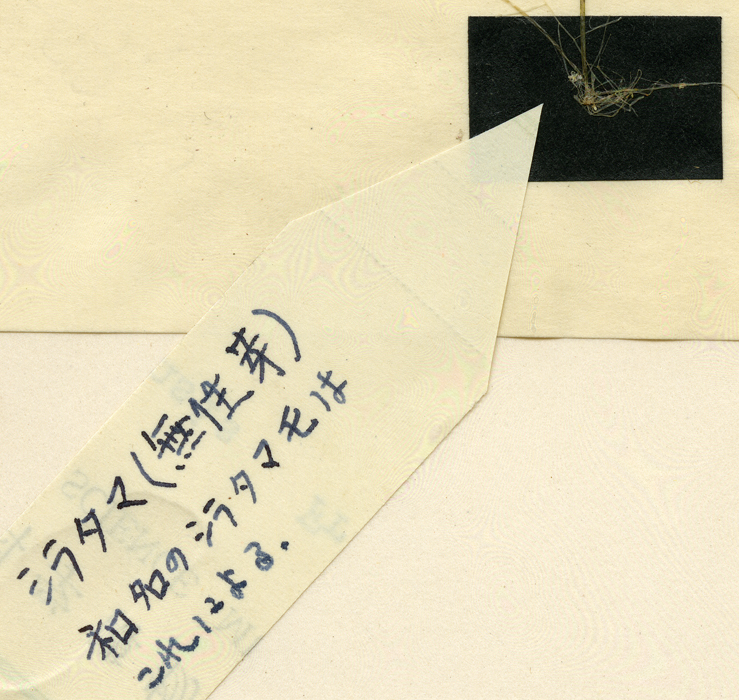 シラタマ(無性芽)
和名のシラタマモは
これによる.